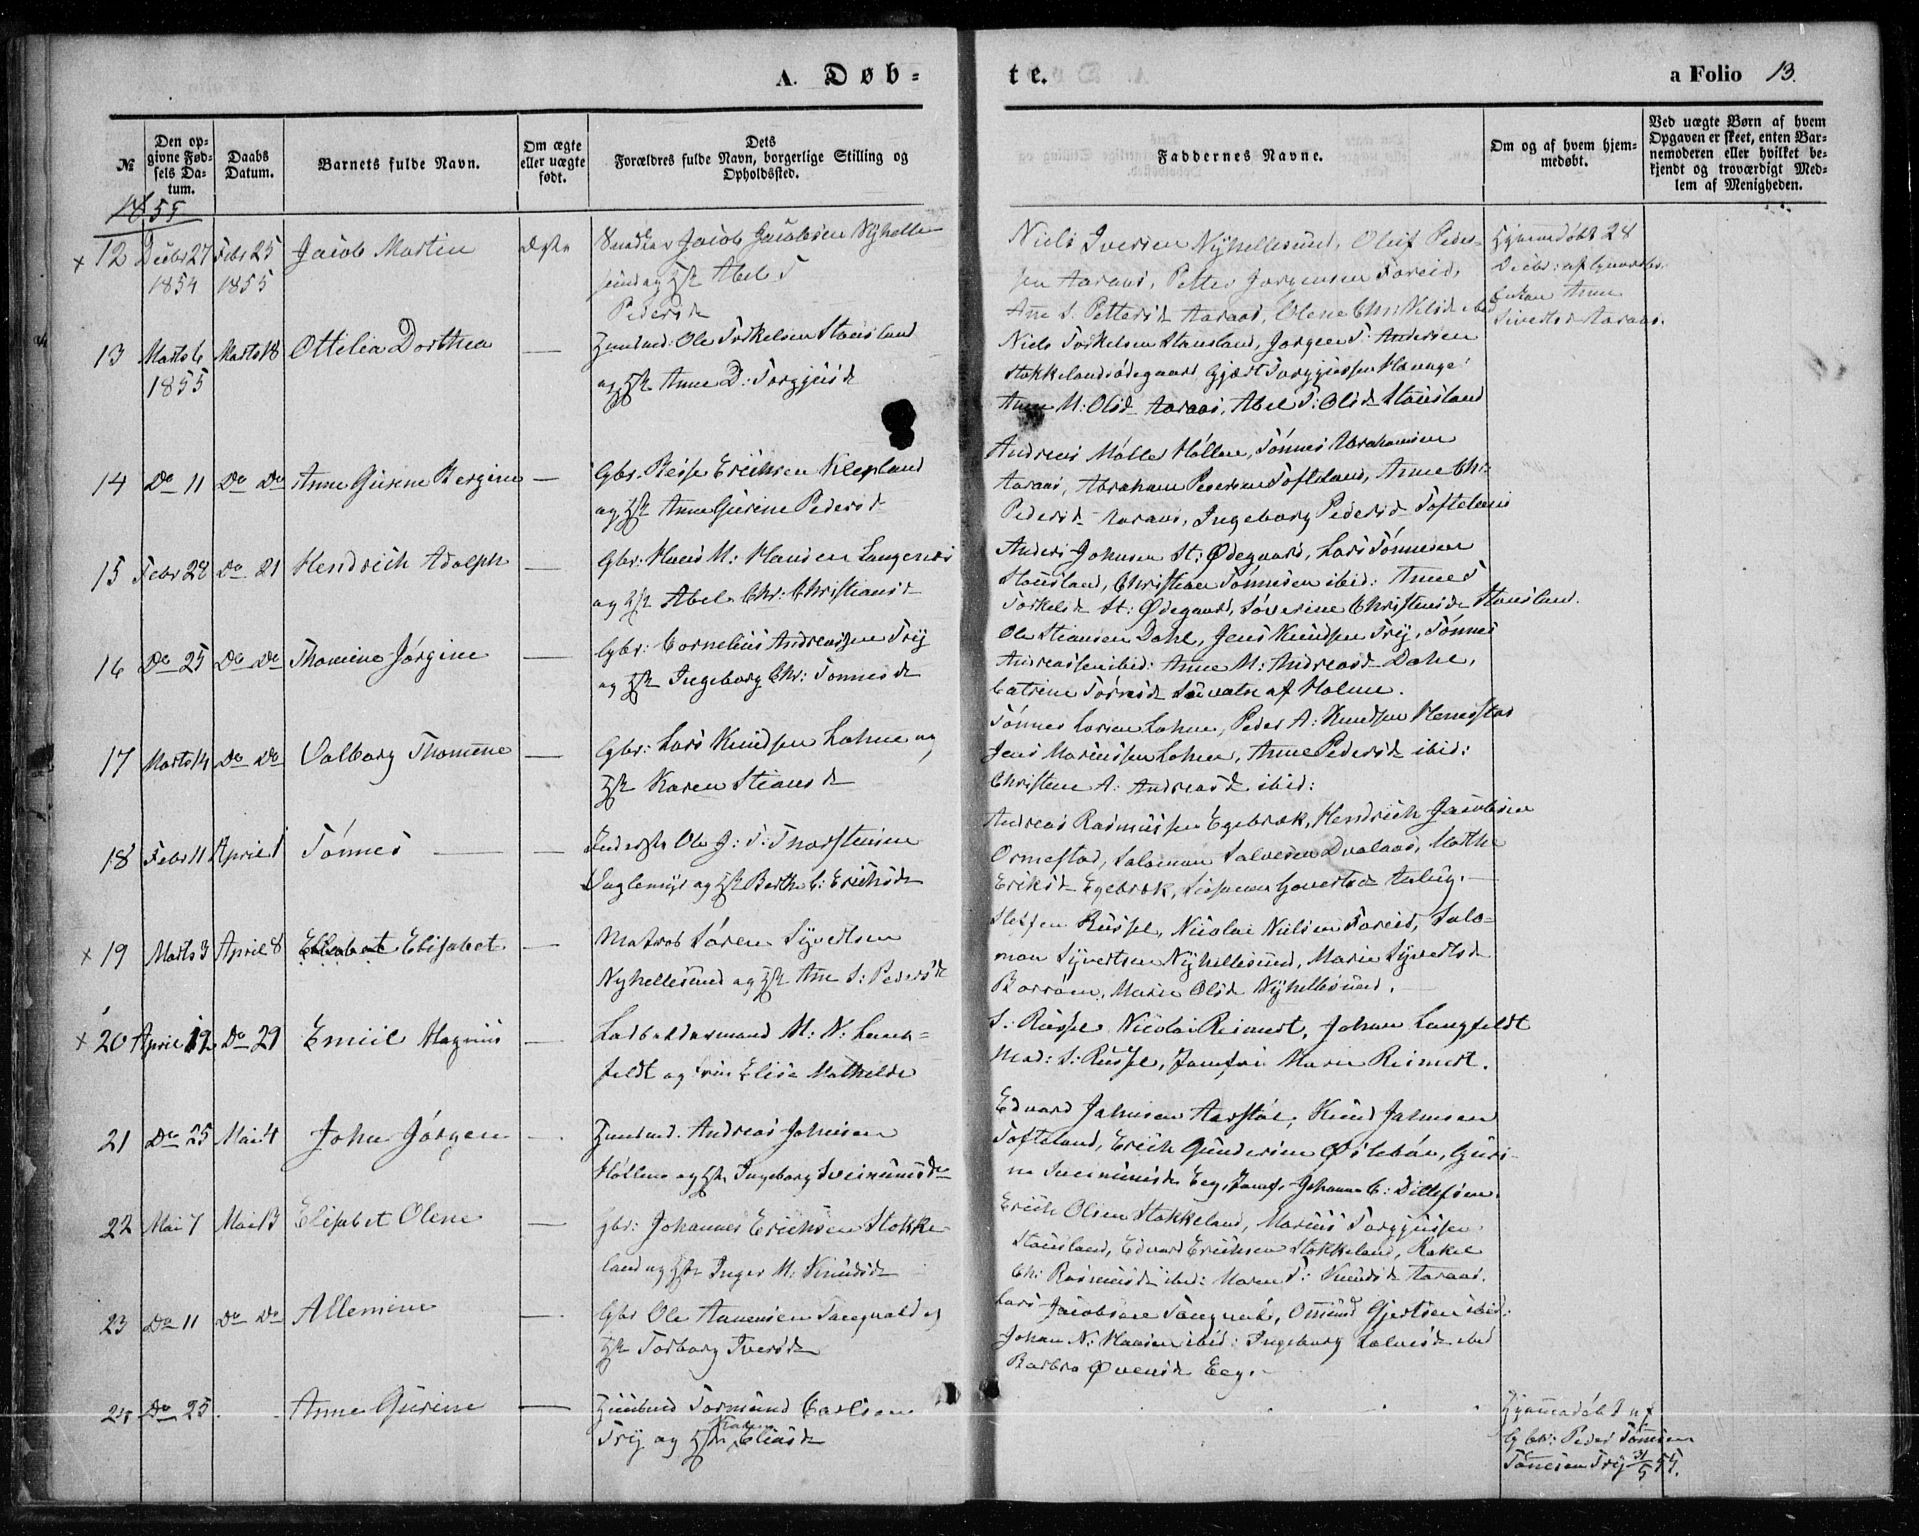 A. Døb-
te.
a Folio 13.
№
Den op-
givne Fød-
sels Da-
tum.
Daabs
Datum.
Barnets fulde Navn.
Om ægte
eller uægte
født.
Dets
Forældres fulde Navn, borgerlige Stilling og
Opholdssted.
Faddernes Navne.
Om og af hvem hjem-
medøbt.
Ved uægte Børn af hvem
Opgaven er skeet, enten Bar-
nemoderen eller hvilket be-
kjendt og troværdigt Med-
lem af Menigheden.
1855
× 12 Decbr 27 1854 Febr 25 1855 Jacob Martin ægte
Jacob Jacobsen Nyhelle-
sund og Hst Abel S
Pedersd
Niels Iversen Nyhellesund, Oluf Peder-
sen Aaraas, Petter Jørgensen Toreid,
Ane S. Pettersd Aaraas, Olene Chr: Nielsd ibid
Hjemmedøbt 28
Decbr: af
Enken Anne
Sivertsd Aaraas.
13 Marts 6 1855 Marts 18 Ottilia Dorthea —
Huusmd: Ole Torkelsen Stausland
og Hst Anne D: Torgjusd
Niels Torkelsen Stausland, Jørgen T. Andersen
Stokkelandsødegaard, Gjært Torggjussen Hauge
Anne M: Olsd Aaraas, Abel T: Olsd Stausland
14 Do 11 Do Do Anne Gurine Bergine —
Gbr. Reier Erichsen Klepland
og Hst Anne Gurine Pedersd
Andreas Mølle Høllen, Tønnes Abrahamsen
Aaraas, Abraham Pedersen Tofteland, Anne Chr:
Pedersd Aaraas, Ingeborg Pedersd Tofteland
15 Febr 28 Do 21 Hendrich Adolph —
Gbr: Hans M: Hansen Langenes
og Hst Abel Chr: Christiansd
Anders Johnsen St: Ødegaard, Lars Tønnesen
Stausland, Christian Tønnesen ibid: Anne T
Torkelsd St: Ødegaard, Søverine Christensd Stausland.
16 Do 25 Do Do Thomine Jørgine —
Gbr: Cornelius Andreassen Try
og Hst Ingeborg Chr: Tønnesd
Ole Stiansen Dahl, Jens Knudsen Try, Tønnes
Andreassen ibid: Anne M: Andreasd Dahl,
Catrine Tørresd af Holme.
17 Marts 14 Do Do Valborg Thomine —
Gbr: Lars Knudsen Lohne og
Hst Karen Stiansd
Tønnes Larsen Lohne, Peder A: Knudsen
Jens Mariussen Lohne, Anne Pedersd ibid:
Christene A: Andreasd ibid:
18 Febr 11 April 1 Tønnes —
Inderst Ole J: T: Thorstensen
og Hst Berthe C: Erichsd
Andreas Rasmussen Egebræk, Hendrich Jacobsen
Ormestad, Salomon Salvesen, Mathe
Eriksd Egebræk,
× 19 Marts 3 April 8 Elisabet —
Matros Søren Syvertsen
Nyhellesund og Hst Ane S: Pedersd
Steffen Russel, Nicolai Nielsen Toreid, Salo-
mon Syvertsen Nyhellesund, Marie Syvertsd
Borrøen, Marie Olsd Nyhellesund.
× 20 April 12 Do 29 Emiil Magnus
Lodsoldermand M: N: Lang-
feldt og Elise Mathilde
S: Russel, Nicolai Reimert, Johan Langfeldt
Mad: S: Russel, Jomfru Marie Reimert.
21 Do 25 Mai 4 John Jørgen —
Huusmd. Andreas Johnsen
Høllen og Hst Ingeborg Sveinunsd
Edvard Johnsen Aarstøl, Knud Johnsen
Tofteland, Erich Gundersen Østebøe, Guri-
ne Sveinunsd Eeg, Jomf. Johanne C: Ditlefsen
22 Mai 7 Mai 13 Elisabet Olene —
Gbr: Johannes Erichsen Stokke-
land og Hst Inger M: Knudsd
Erich Olsen Stokkeland, Marius Torggjussen
Stausland, Edvard Erichsen Stokkeland, Rakel
Chr: Rasmusd ibid: Maren T: Knudsd Aaraas.
23 Do 11 Do Do Allemine —
Gbr Ole Aanensen Tangvald og
Hst Torborg Iversd
Lars Jacobsen Tangvald, Omund Gjertsen ibid:
Johan N: Hansen ibid: Ingeborg Salvesd ibid
Barbra Øvensd Eeg.
24 Do 25 Anne Gurine —
Huusmd Tormund Carlsen
Try og Hst Eliasd
Hjemmedøbt af
Gbr: Peder Tønnesen
Try 31/5 55.